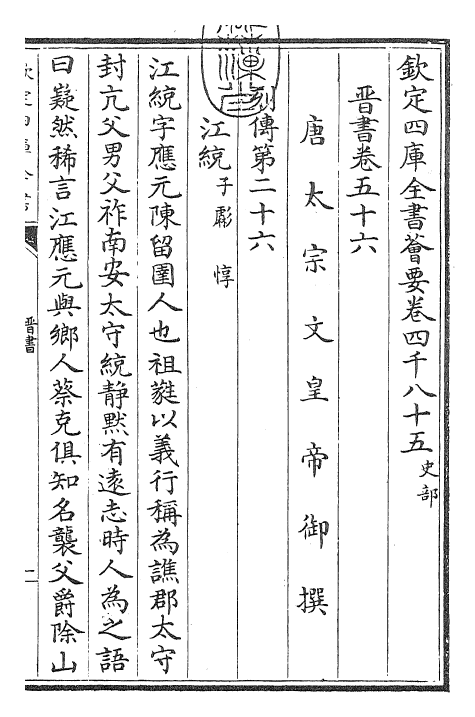 欽定四庫全書薈要卷四千八十五史部
晉書卷五十六
唐太宗文皇帝御撰
列傳第二十六
江統子彪惇
江統字應元陳留圉人也祖蕤以義行稱為譙郡太守
封亢父男父祚南安太守統靜默有遠志時人為之語
曰嶷然稀言江應元與鄉人蔡克俱知名襲父爵除山
晉書